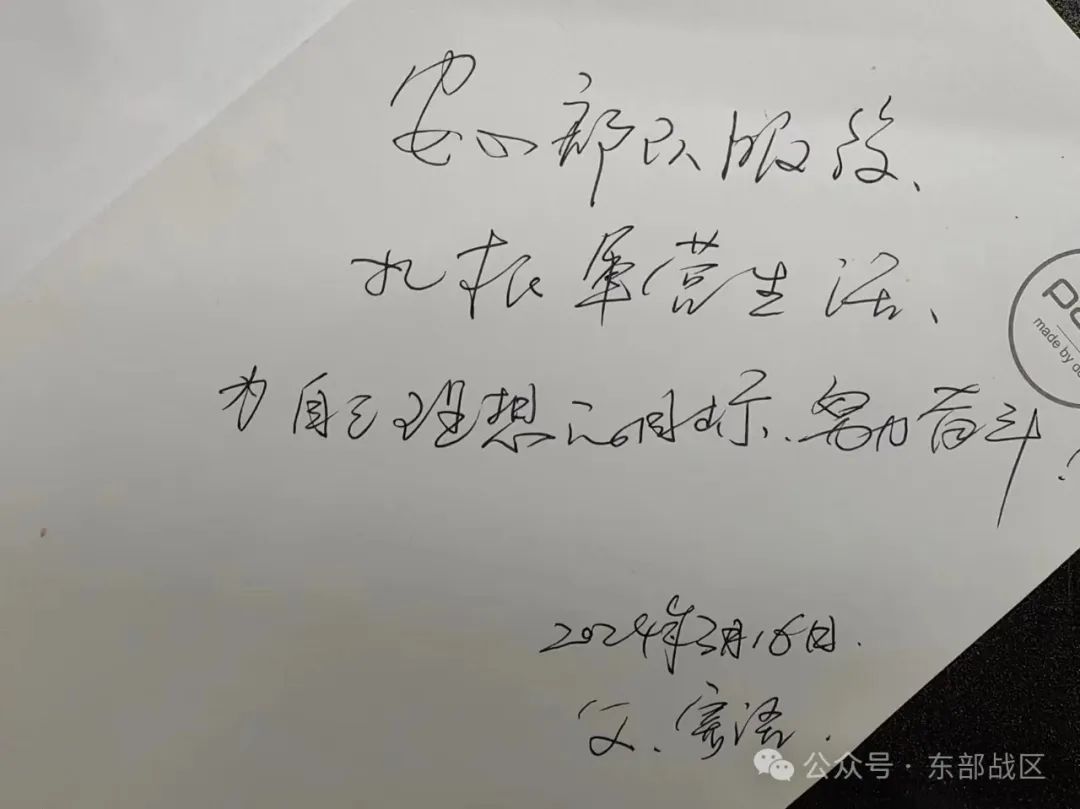 安心部队服役、
扎根军营生活、
为自己理想之目标、努力奋斗!
2024年3月16日.
父、寄语.
made by de
公众号 · 东部战区